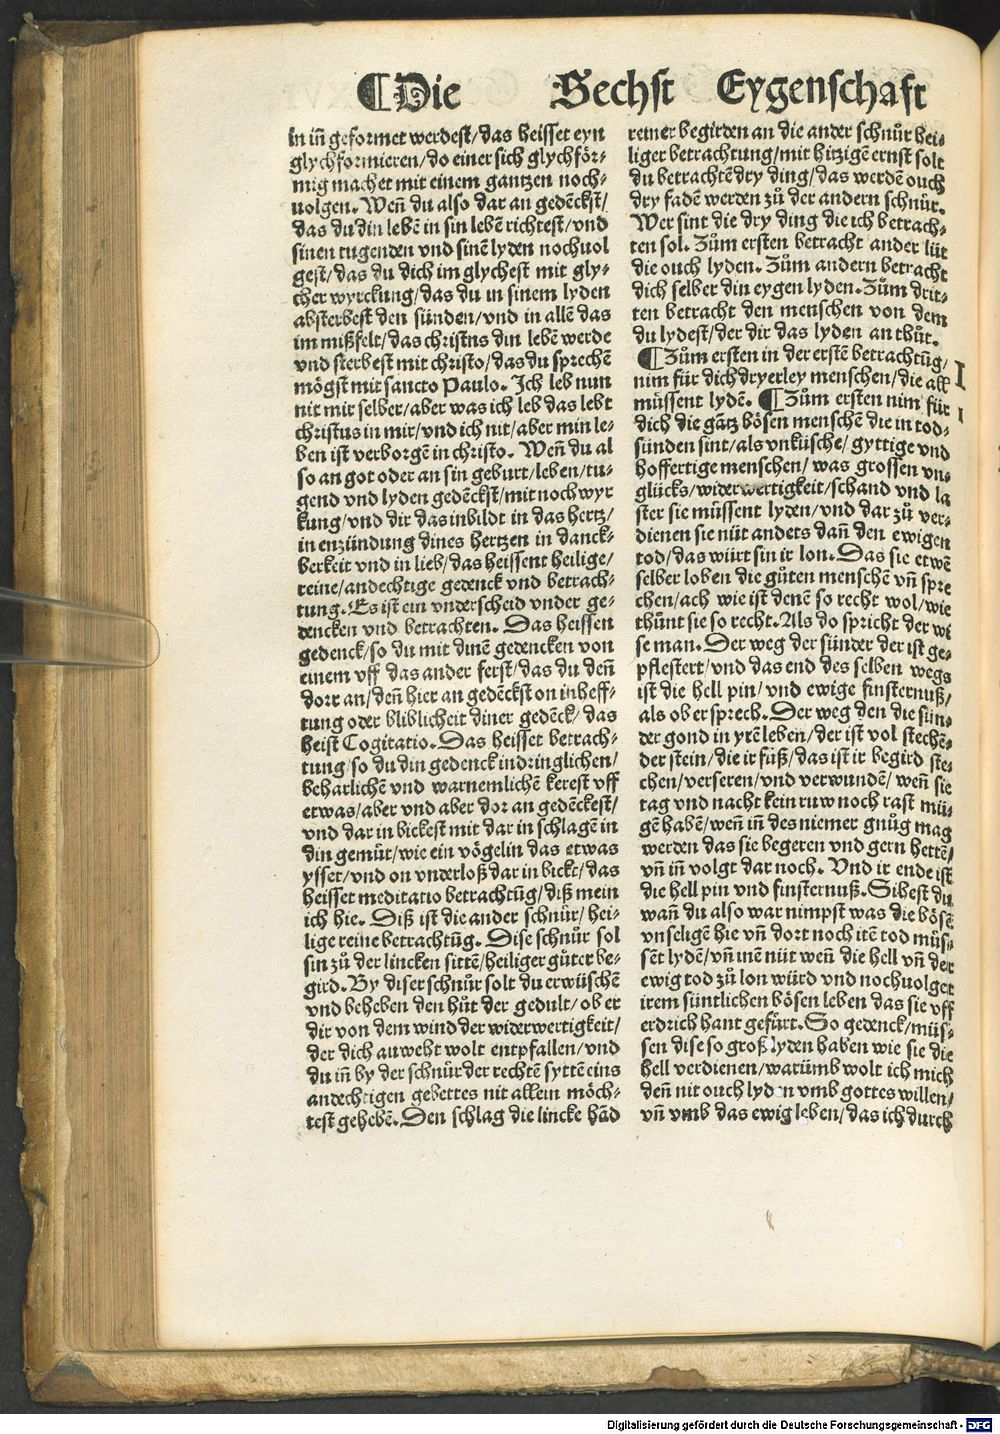 ¶Die Sechst Eygenschaft
in in̄ geformet werdest/das heisset eyn
glychformieren/do einer sich glychför⸗
mig machet mit einem gantzen noch⸗
uolgen. Wen̄ du also dar an gedēckst/
das du din lebē in sin lebē richtest/vnd
sinen tugenden vnd sinē lyden nochuol
gest/das du dich im glychest mit gly⸗
cher wyrckung/das du in sinem lyden
absterbest den sünden/vnd in allē das
im mißfelt/das christus din lebē werde
vnd sterbest mit christo/das du sprechē
mögst mit sancto Paulo. Ich leb nun
nit mir selber/aber was ich leb das lebt
christus in mir/vnd ich nit/aber min le⸗
ben ist verborgē in christo. Wen̄ du al
so an got oder an sin geburt/leben/tu⸗
gend vnd lyden gedēckst/mit noch wyr
kung/vnd dir das inbildt in das hertz/
in enzündung dines hertzen in danck⸗
berkeit vnd in lieb/das heissent heilige/
reine/andechtige gedenck vnd betrach⸗
tung. Es ist ein vnderscheid vnder ge⸗
dencken vnd betrachten. Das heissen
gedenck/so du mit dinē gedencken von
einem vff das ander ferst/das du den̄
dort an/den̄ hier an gedēckst on inheff⸗
tung oder bliblicheit diner gedēck/das
heist Cogitatio. Das heisset betrach⸗
tung/so du din gedenck indringlichen/
beharlichen vnd warnemlichē kerest vff
etwas/aber vnd aber dor an gedēckest/
vnd dar in bickest mit dar in schlagē in
din gemüt/wie ein vögelin das etwas
ysset/vnd on vnderloß dar in bickt/das
heisset meditatio betrachtūg/diß mein
ich hie. Diß ist die ander schnůr/hei⸗
lige reine betrachtūg. Dise schnůr sol
sin zů der lincken sittē/heiliger gůter be⸗
gird. By diser schnůr solt du erwüschē
vnd beheben den hůt der gedult/ob er
dir von dem wind der widerwertigkeit/
der dich anweht wolt entpfallen/vnd
du in̄ by der schnůr der rechtē syttē eins
andechtigen gebettes nit allein möch⸗
test gehebē. Den schlag die lincke hād
reiner begirden an die ander schnůr hei⸗
liger betrachtung/mit hitzigē ernst solt
du betrachtē dry ding/das werdē ouch
dry fadē werden zů der andern schnůr.
Wer sint die dry ding die ich betrach⸗
ten sol. Zům ersten betracht ander lüt
die ouch lyden. Zům andern betracht
dich selber din eygen lyden. Zům drit⸗
ten betracht den menschen von dem
du lydest/der dir das lyden an thůt.
¶Zům ersten in der erstē betrachtūg/
nim für dich dryerley menschen/die all
müssent lydē. ¶Zům ersten nim für
dich die gātz bösen menschē die in tod⸗
sünden sint/als vnküsche/gyttige vnd
hoffertige menschen/was grossen vn⸗
glücks/widerwertigkeit/schand vnd la
ster sie müssent lyden/vnd dar zů ver⸗
dienen sie nüt anders dan̄ den ewigen
tod/das würt sin ir lon. Das sie etwē
selber loben die gůten menschē vn̄ spre
chen/ach wie ist denē so recht wol/wie
thůnt sie so recht. Als do spricht der wi
se man. Der weg der sünder der ist ge⸗
pflestert/vnd das end des selben wegs
ist die hell pin/vnd ewige finsternuß/
als ob er sprech. Der weg den die sün⸗
der gond in yrē leben/der ist vol stechē⸗
der stein/die ir füß/das ist ir begird ste⸗
chen/verseren/vnd verwundē/wen̄ sie
tag vnd nacht kein ruw noch rast mü⸗
gē habē/wen̄ in̄ des niemer gnůg mag
werden das sie begeren vnd gern hettē/
vn̄ in̄ volgt dar noch. Vnd ir ende ist
die hell pin vnd finsternuß. Sihest du
wan̄ du also war nimpst was die bösē
vnseligē hie vn̄ dort noch itē tod müs⸗
sēt lydē/vn̄ inē nüt wen̄ die hell vn̄ der
ewig tod zů lon würd vnd nochuolget
irem süntlichen bösen leben das sie vff
erdrich hant gefürt. So gedenck/müs⸗
sen dise so groß lyden haben wie sie die
hell verdienen/warūmb wolt ich mich
den̄ nit ouch lyden vmb gottes willen/
vn̄ vmb das ewig leben/das ich durch
I
I
Digitalisierung gefördert durch die Deutsche Forschungsgemeinschaft - DFG